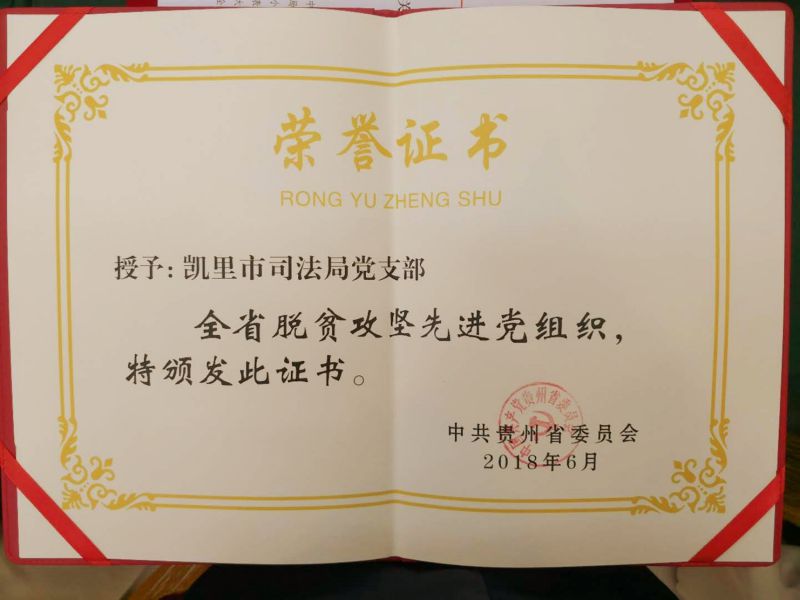 荣誉证书
RONG YU ZHENG SHU
授予：凯里市司法局党支部
全省脱贫攻坚先进党组织，
特颁发此证书。
中国共产党贵州省委员会
中共贵州省委员会
2018年6月